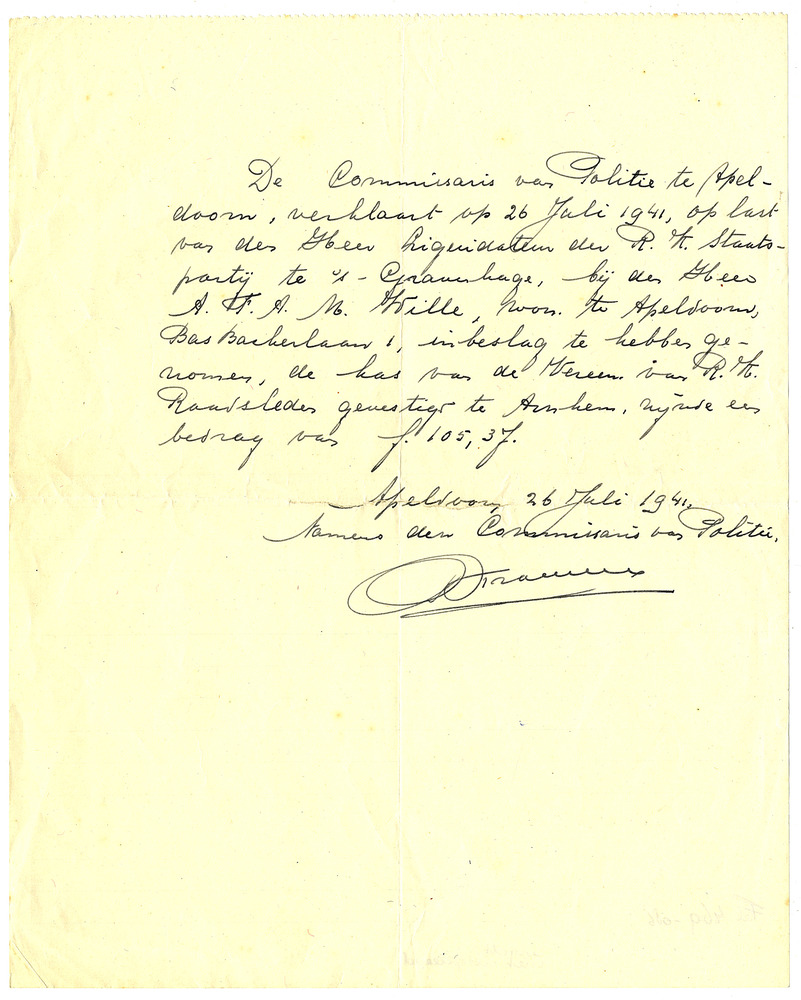 De Commissaris van Politie te Apel-
doorn, verklaart op 26 Juli 1941, op last
van den Heer Liquidateur der R. K. Staats-
partij te 's-Gravenhage, bij den Heer
A. F. A. M. Wille, won. te Apeldoorn,
Bas Backerlaan 1, inbeslag te hebben ge-
nomen, de kas van de Vereen. van R. K.
Raadsleden gevestigd te Arnhem, zijnde een
bedrag van f. 105,37.
Apeldoorn, 26 Juli 1941.
Namens den Commissaris van Politie,